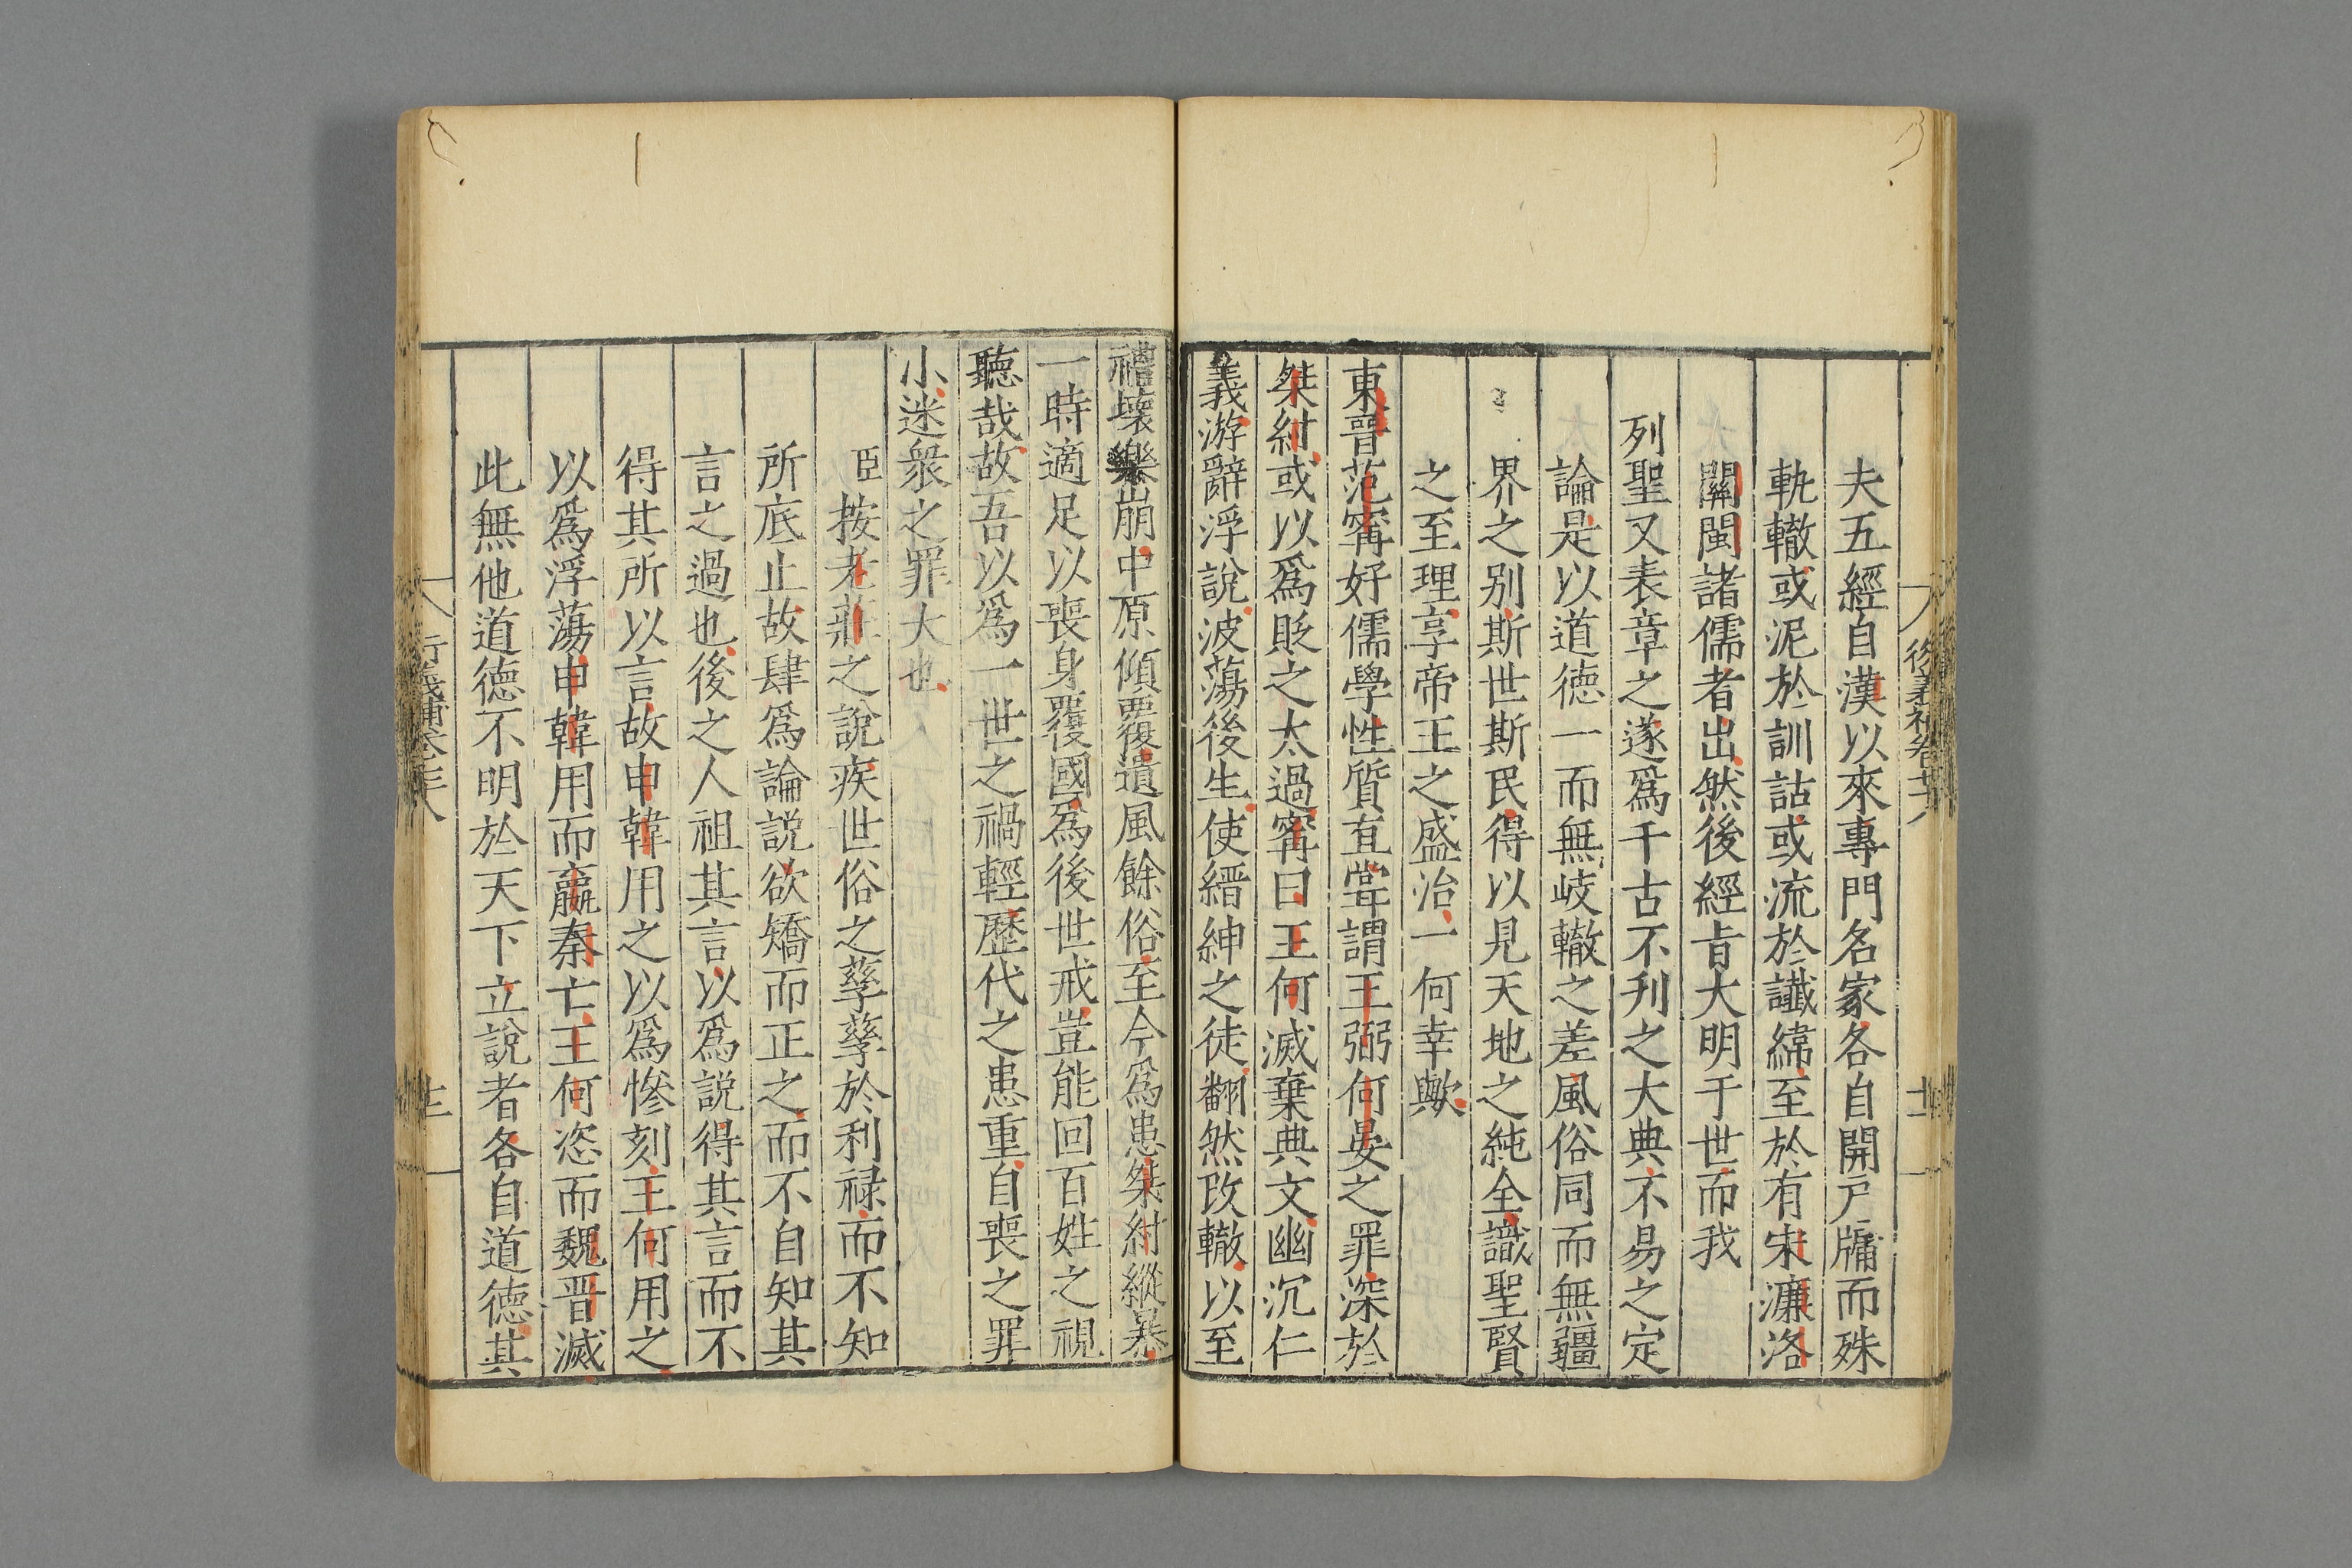 夫五經自漢以來專門名家各自開戸牖而殊
軌轍或泥於訓詁或流於讖緯至於有宋濂洛
關閩諸儒者出然後經㫖大明于世而我
列聖又表章之遂爲千古不刋之大典不易之定
論是以道德一而無岐轍之差風俗同而無疆
界之别斯世斯民得以見天地之純全識聖賢
之至理享帝王之盛治一何幸歟
東晉范寗好儒學性質直嘗謂王弼何晏之罪深於
桀紂或以爲貶之太過寗曰王何滅棄典文幽沉仁
義游辭浮說波蕩後生使縉紳之徒翻然改轍以至
禮壞樂崩中原傾覆遺風餘俗至今爲患桀紂縱暴
一時適足以喪身覆國爲後世戒豈能回百姓之視
聽哉故吾以爲一世之禍輕歷代之患重自喪之罪
小迷衆之罪大也
臣按老莊之說疾世俗之孳孳於利禄而不知
所底止故肆爲論説欲矯而正之而不自知其
言之過也後之人祖其言以爲説得其言而不
得其所以言故申韓用之以爲慘刻王何用之
以爲浮蕩申韓用而嬴秦亡王何恣而魏晋滅
此無他道德不明於天下立說者各自道德其